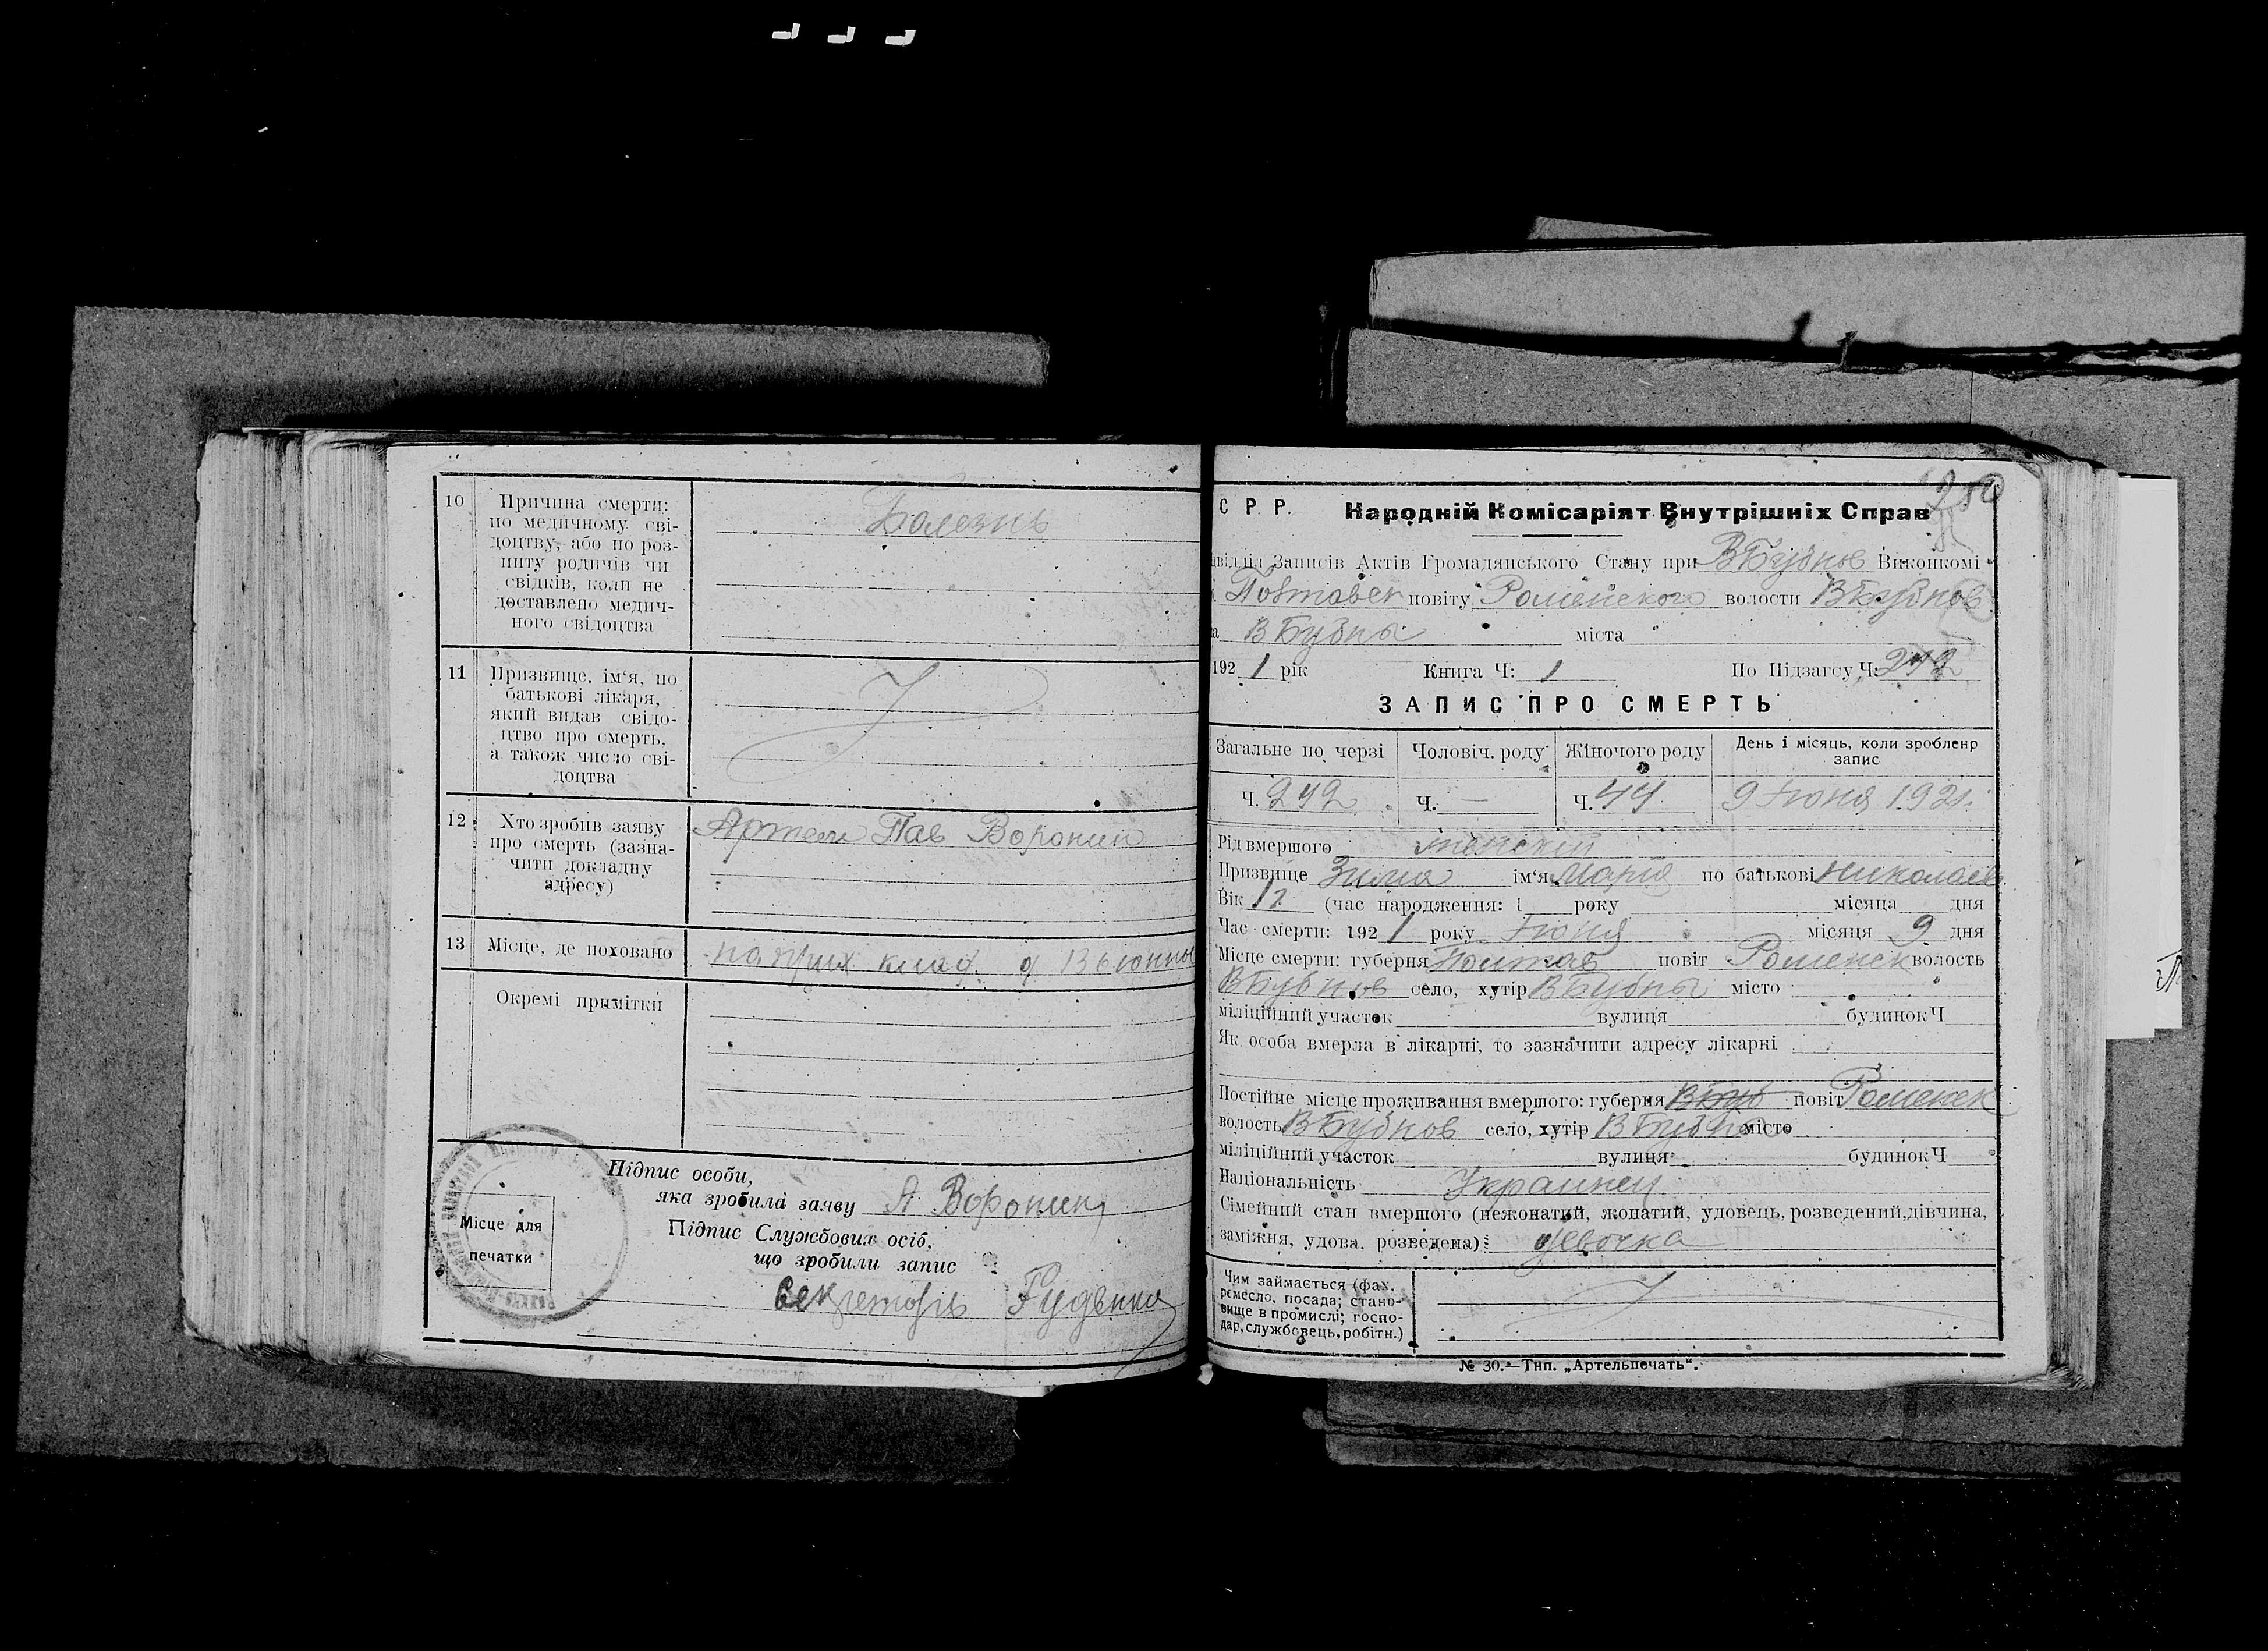 10 Причина смерти:
по медичному сві-
доцтву, або по роз-
питу родичів чи
свідків, коли не
доставлено медич-
ного свідоцтва
Болезнь
11 Призвище, ім‘я, по
батькові лікаря,
який видав свідо-
цтво про смерть,
а також число сві-
доцтва
12 Хто зробив заяву
про смерть (зазна-
чити докладну
адресу)
Артем Пав Воронин
13 Місце, де поховано
на прих клад
Окремі примітки
Місце для
печатки
Підпис особи,
яка зробила заяву А Воронин
Підпис Службових осіб,
що зробили запис
Секретарь Руденко
С Р. Р. Народній Комісаріят Внутрішніх Справ
двідділ Записів Актів Громадянського Стану при ВБубнов Виконкомі
Полтавск повіту Роменского волости ВБубнов
а ВБубны міста
1921 рік Книга Ч: 1 По Підзагсу Ч: 242
ЗАПИС ПРО СМЕРТЬ
Загальне по черзі Чоловіч. роду Жіночого роду День і місяць, коли зроблено
запис
Ч. 242 Ч. — Ч. 44 9 Июня 1921.
Рід вмершого женский
Призвище Зима ім‘я Мария по батькові Николаев
Вік 12 (час народження: 1 року місяца дня
Час смерти: 1921 року Июня місяця 9 дня
Місце смерти: губерня Полтав повіт Роменск волость
ВБубнов село, хутір ВБубны місто
міліційний участок вулиця будинок Ч
Як особа вмерла в лікарні, то зазначити адресу лікарні
Постійне місце проживання вмершого: губерня ВБуб повіт Роменск
волость ВБубнов село, хутір ВБубно місто
міліційний участок вулиця будинок Ч
Національність Украинец
Сімейний стан вмершого (нежонатий, жонатий, удовець, розведений, дівчина,
заміжня, удова, розведена): девочка
Чим займається (фах,
ремесло, посада; стано-
вище в промислі; госпо-
дар, службовець, робітн.)
№ 30.—Тип. „Артельпечать“.